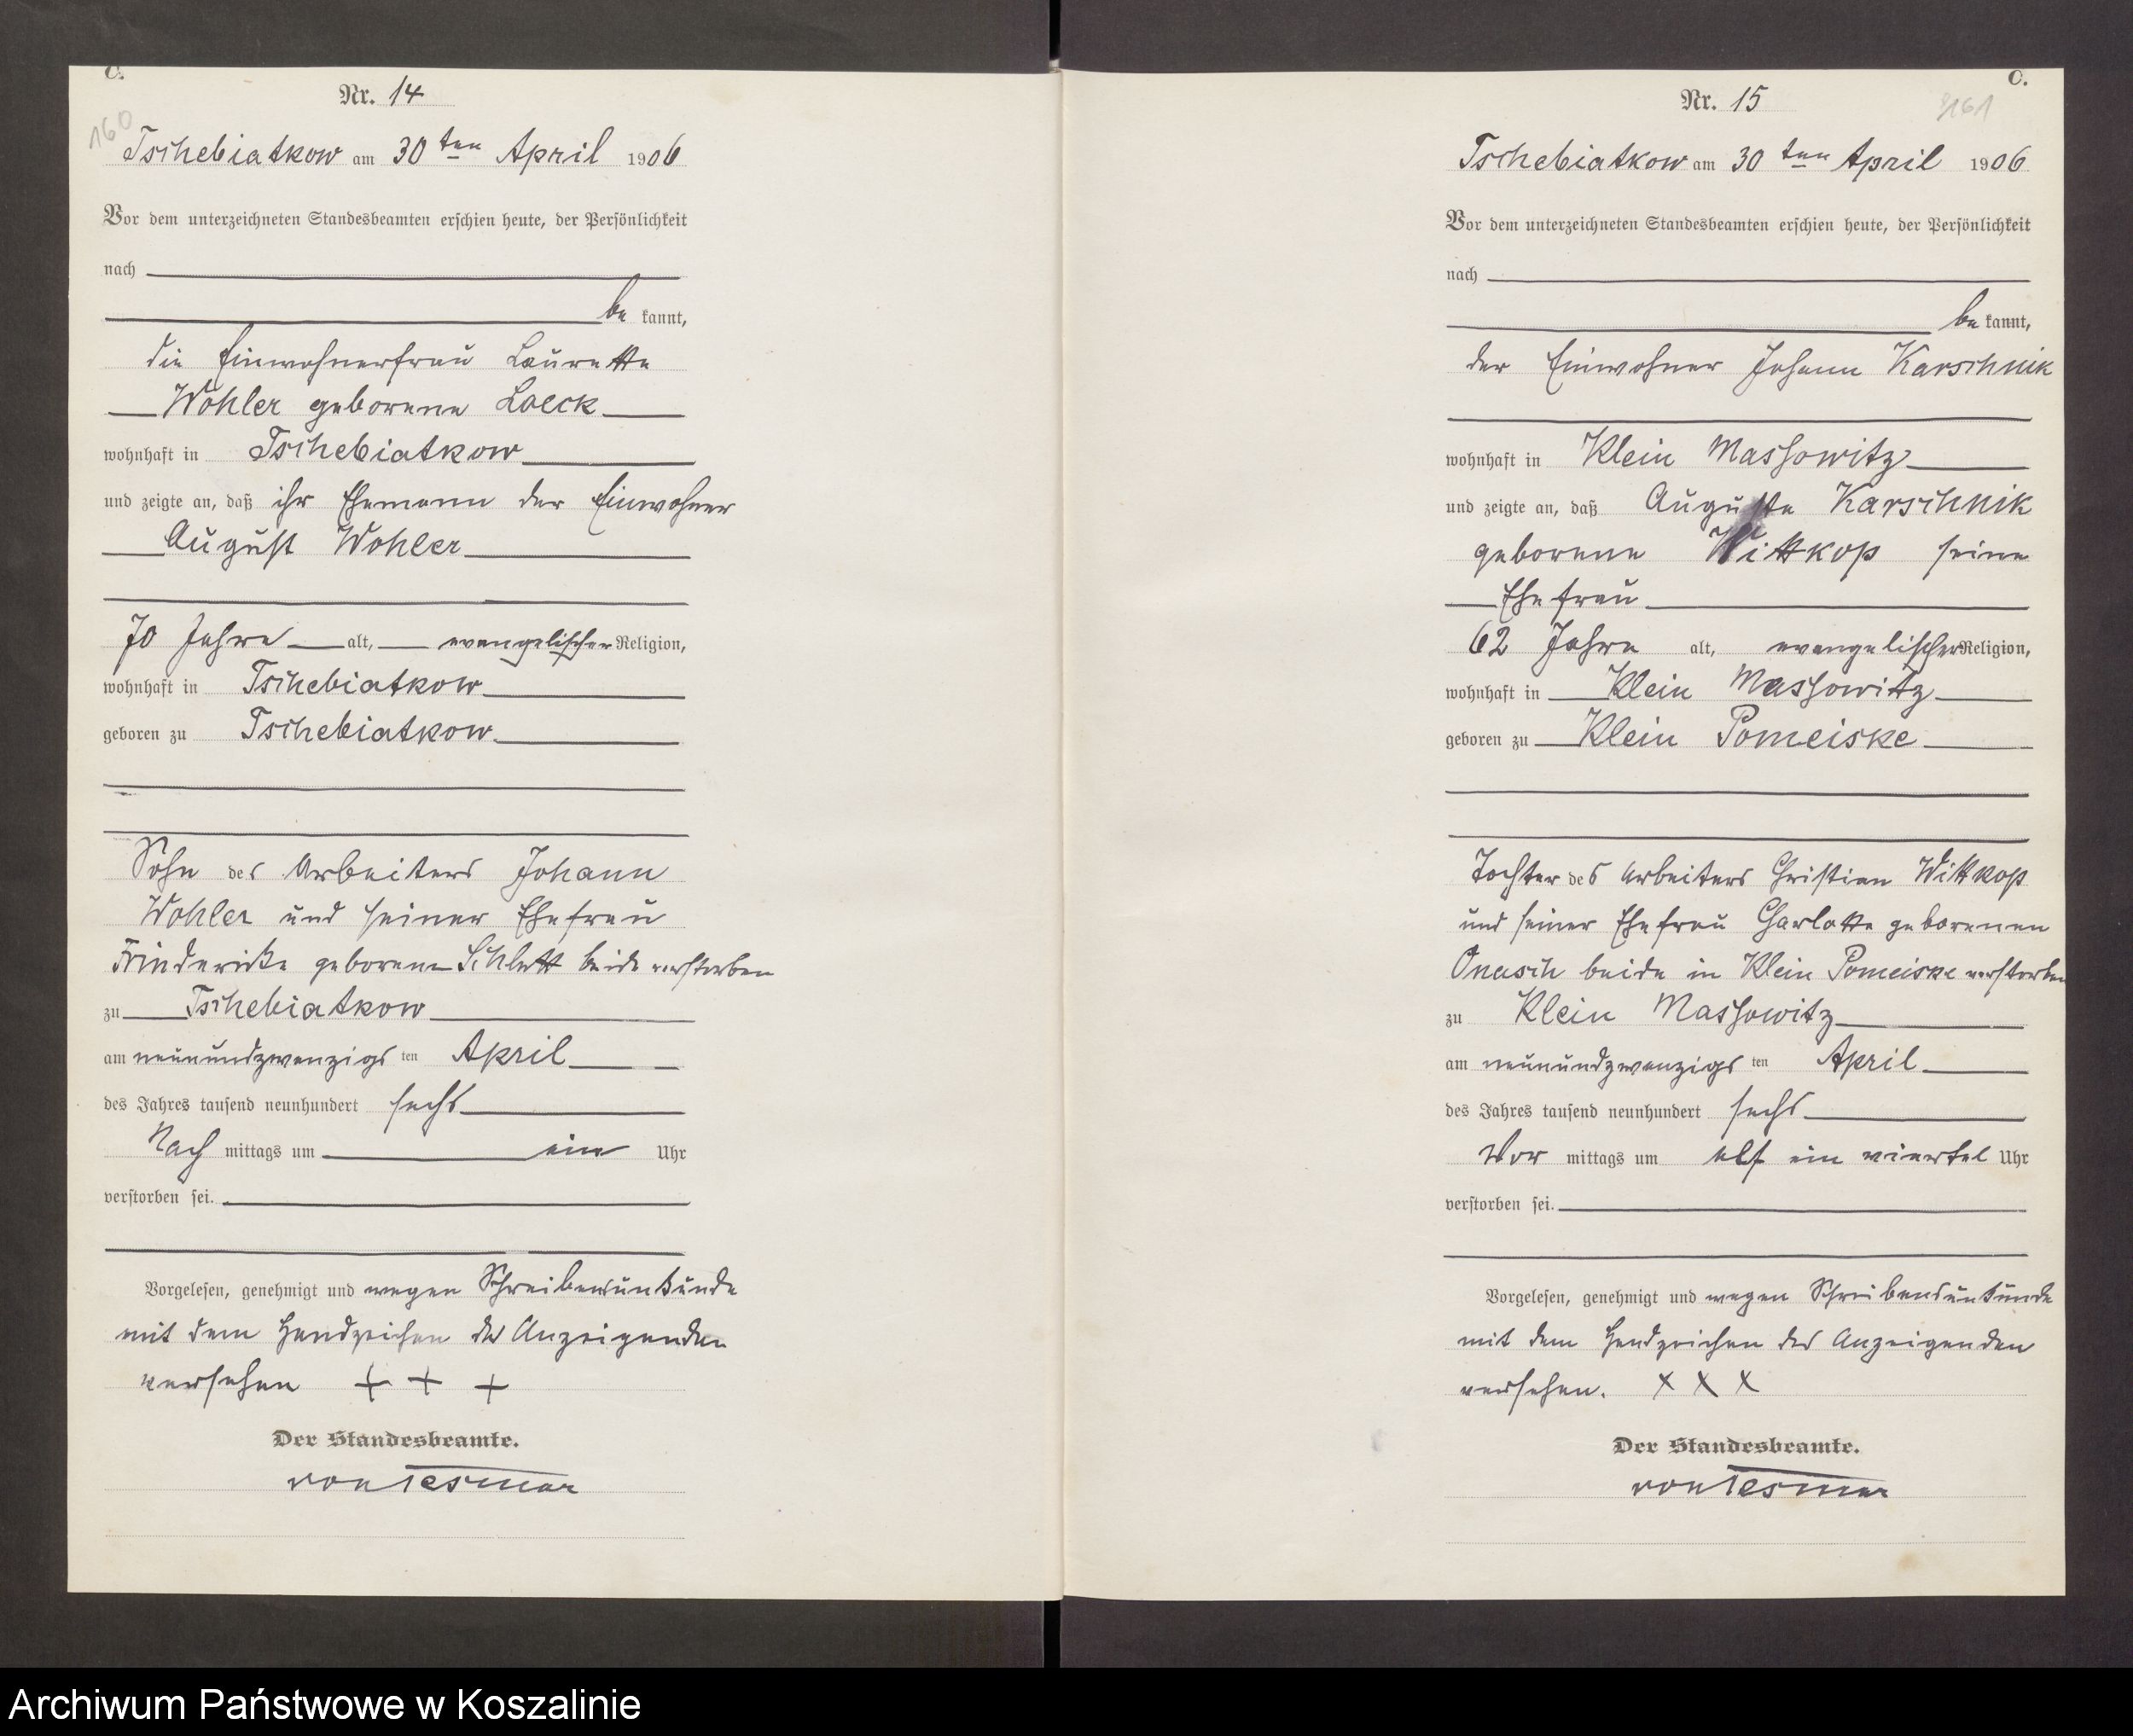 C.
Nr. 14
160
Tschebiatkow am 30 ten April 1906
Vor dem unterzeichneten Standesbeamten erschien heute, der Persönlichkeit
nach
be kannt,
die Einwohnerfrau Laurette
Wohler geborene Loeck
wohnhaft in Tschebiatkow
und zeigte an, daß ihr Ehemann der Einwohner
August Wohler
70 Jahre alt, evangelischer Religion,
wohnhaft in Tschebiatkow
geboren zu Tschebiatkow
Sohn des Arbeiters Johann
Wohler und seiner Ehefrau
Friederike geborene Schlett beide verstorben
zu Tschebiatkow
am neunundzwanzigs ten April
des Jahres tausend neunhundert sechs
Nach mittags um ein Uhr
verstorben sei.
Vorgelesen, genehmigt und wegen Schreibensunkunde
mit dem Handzeichen der Anzeigenden
versehen + + +
Der Standesbeamte.
von Tesmar
C.
Nr. 15
161
Tschebiatkow am 30 ten April 1906
Vor dem unterzeichneten Standesbeamten erschien heute, der Persönlichkeit
nach
be kannt,
der Einwohner Johann Karschnik
wohnhaft in Klein Massowitz
und zeigte an, daß Auguste Karschnik
geborene Wittkop seine
Ehefrau
62 Jahre alt, evangelischer Religion,
wohnhaft in Klein Massowitz
geboren zu Klein Pomeiske
Tochter des Arbeiters Christian Wittkop
und seiner Ehefrau Charlotte geborenen
Onasch beide in Klein Pomeiske verstorben
zu Klein Massowitz
am neunundzwanzigs ten April
des Jahres tausend neunhundert sechs
Vor mittags um elf ein viertel Uhr
verstorben sei.
Vorgelesen, genehmigt und wegen Schreibensunkunde
mit dem Handzeichen des Anzeigenden
versehen. x x x
Der Standesbeamte.
von Tesmar
Archiwum Państwowe w Koszalinie